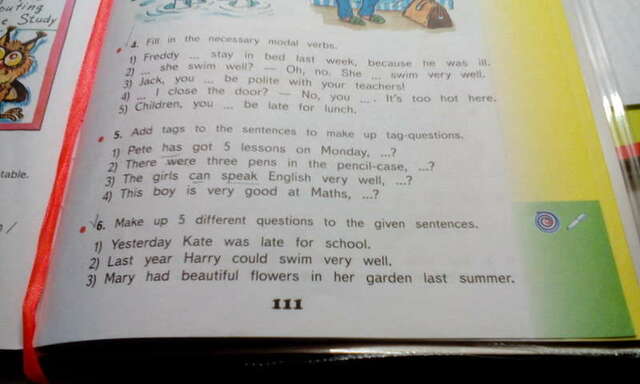 outing
e Study
table.
4. Fill in the necessary modal verbs.
1) Freddy ... stay in bed last week, because he was ill.
2) ... she swim well? — Oh, no. She ... swim very well.
3) Jack, you ... be polite with your teachers!
4) ... I close the door? — No, you ... . It's too hot here.
5) Children, you ... be late for lunch.
5. Add tags to the sentences to make up tag-questions.
1) Pete has got 5 lessons on Monday, ...?
2) There were three pens in the pencil-case, ...?
3) The girls can speak English very well, ...?
4) This boy is very good at Maths, ...?
6. Make up 5 different questions to the given sentences.
1) Yesterday Kate was late for school.
2) Last year Harry could swim very well.
3) Mary had beautiful flowers in her garden last summer.
111